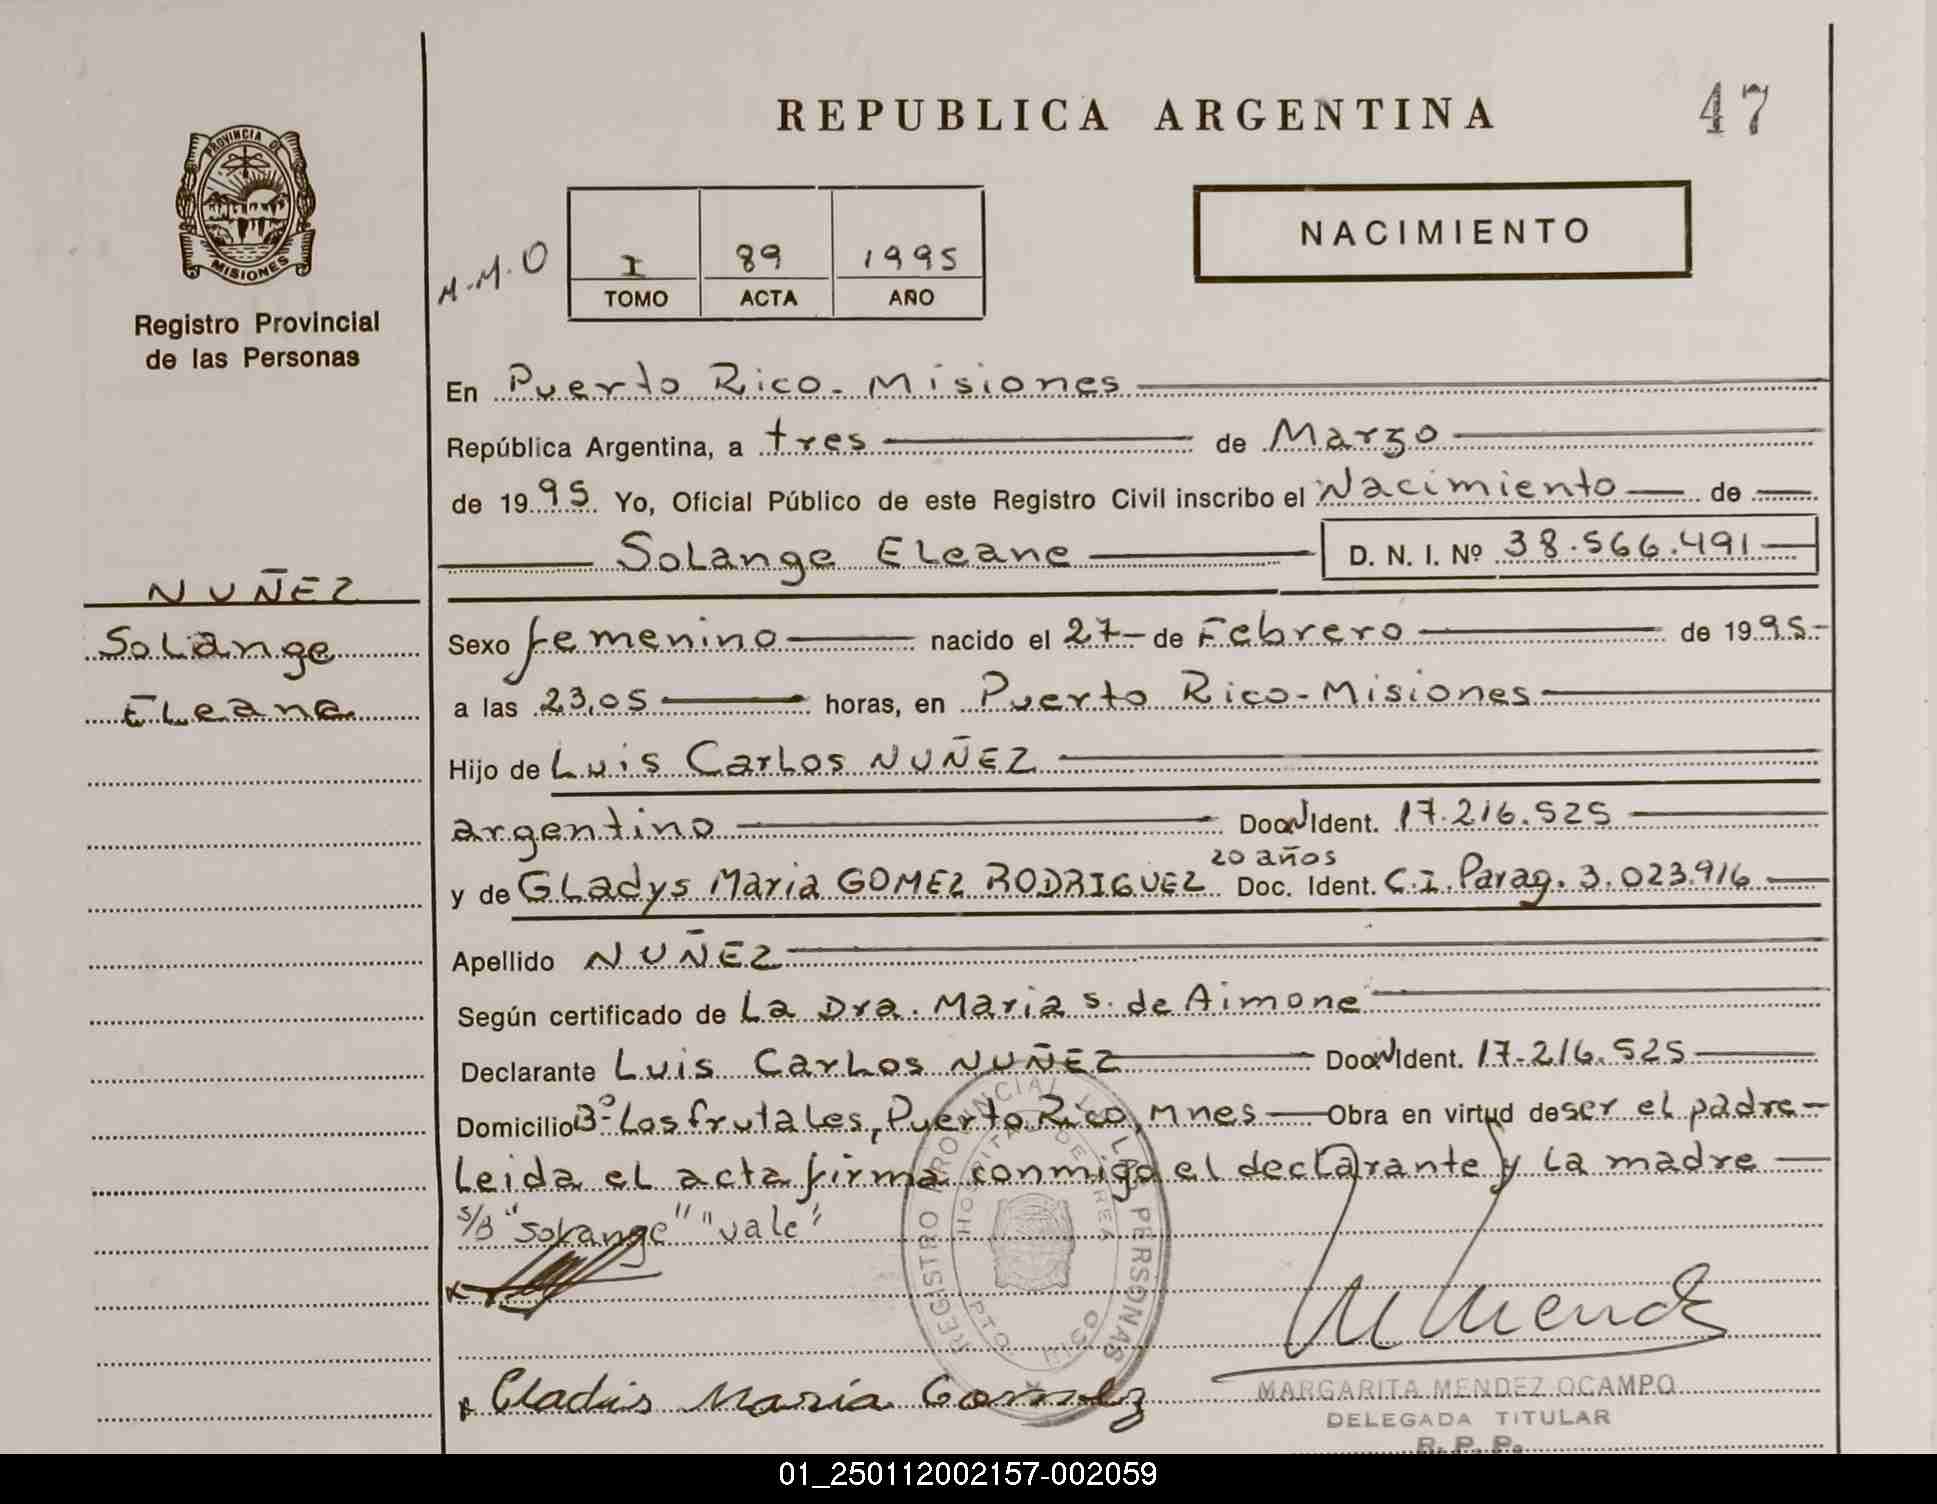 REPUBLICA ARGENTINA
47
PROVINCIA DE
MISIONES
Registro Provincial
de las Personas
M.M.O
I 89 1995
TOMO ACTA AÑO
NACIMIENTO
En Puerto Rico - Misiones
República Argentina, a tres de Marzo
de 1995 Yo, Oficial Público de este Registro Civil inscribo el Nacimiento de
Solange Eleane D. N. I. Nº 38.566.491
NUÑEZ
Solange
Eleana
Sexo femenino nacido el 27 de Febrero de 1995
a las 23,05 horas, en Puerto Rico - Misiones
Hijo de Luis Carlos NUÑEZ
argentino Ident. 17.216.525
20 años
y de Gladys Maria GOMEZ RODRIGUEZ Doc. Ident. C.I. Parag. 3.023.916
Apellido NUÑEZ
Según certificado de La Dra. Maria S. de Aimone
Declarante Luis Carlos NUÑEZ Ident. 17.216.525
Domicilio Bº Los frutales, Puerto Rico, Mnes Obra en virtud de ser el padre
Leida el acta firma conmigo el declarante y la madre
s/B "Solange" "vale"
REGISTRO PROVINCIAL DE LAS PERSONAS
HOSPITAL DE AREA
PTO RICO
M Mendez
x Gladis Maria Gomez
MARGARITA MENDEZ OCAMPO
DELEGADA TITULAR
R. P. P.
01_250112002157-002059